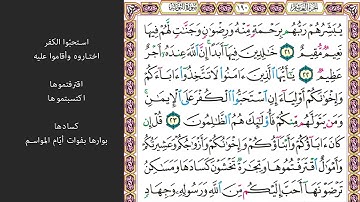 الجزء العاشر
١٩٠
سورة التوبة
يُبَشِّرُهُمْ رَبُّهُم بِرَحْمَةٍ مِّنْهُ وَرِضْوَٰنٍ وَجَنَّٰتٍ لَّهُمْ فِيهَا
نَعِيمٌ مُّقِيمٌ ٢١ خَٰلِدِينَ فِيهَآ أَبَدًا إِنَّ ٱللَّهَ عِندَهُۥٓ أَجْرٌ
عَظِيمٌ ٢٢ يَٰٓأَيُّهَا ٱلَّذِينَ ءَامَنُوا۟ لَا تَتَّخِذُوٓا۟ ءَابَآءَكُمْ
وَإِخْوَٰنَكُمْ أَوْلِيَآءَ إِنِ ٱسْتَحَبُّوا۟ ٱلْكُفْرَ عَلَى ٱلْإِيمَٰنِ
وَمَن يَتَوَلَّهُم مِّنكُمْ فَأُو۟لَٰٓئِكَ هُمُ ٱلظَّٰلِمُونَ ٢٣ قُلْ إِن
كَانَ ءَابَآؤُكُمْ وَأَبْنَآؤُكُمْ وَإِخْوَٰنُكُمْ وَأَزْوَٰجُكُمْ وَعَشِيرَتُكُمْ
وَأَمْوَٰلٌ ٱقْتَرَفْتُمُوهَا وَتِجَٰرَةٌ تَخْشَوْنَ كَسَادَهَا وَمَسَٰكِنُ
تَرْضَوْنَهَآ أَحَبَّ إِلَيْكُم مِّنَ ٱللَّهِ وَرَسُولِهِۦ وَجِهَادٍ
استحبّوا الكفر
اختاروه وأقاموا عليه
اقترفتموها
اكتسبتموها
كسادها
بوارها بفوات أيّام المواسم